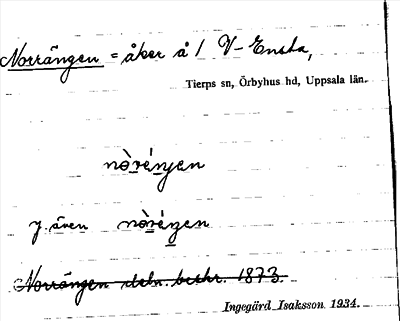 Norrängen = åker å / V-Ensta,
Tierps sn, Örbyhus hd, Uppsala län.
nòrénjen
j. även nòrénjen
Norrängen deln. beskr. 1873.
Ingegärd Isaksson 1934.